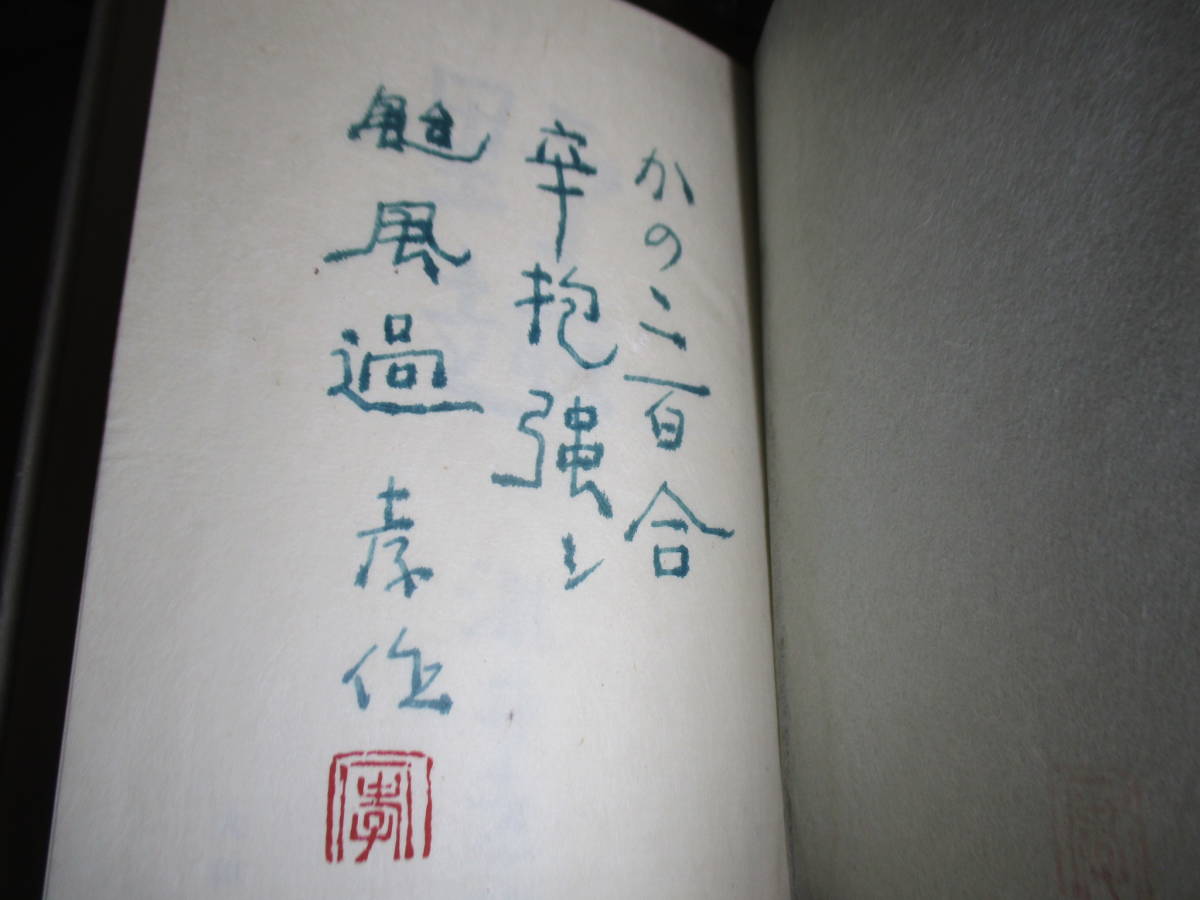 かのこ百合
辛抱強し
颱風過
孝作
孝